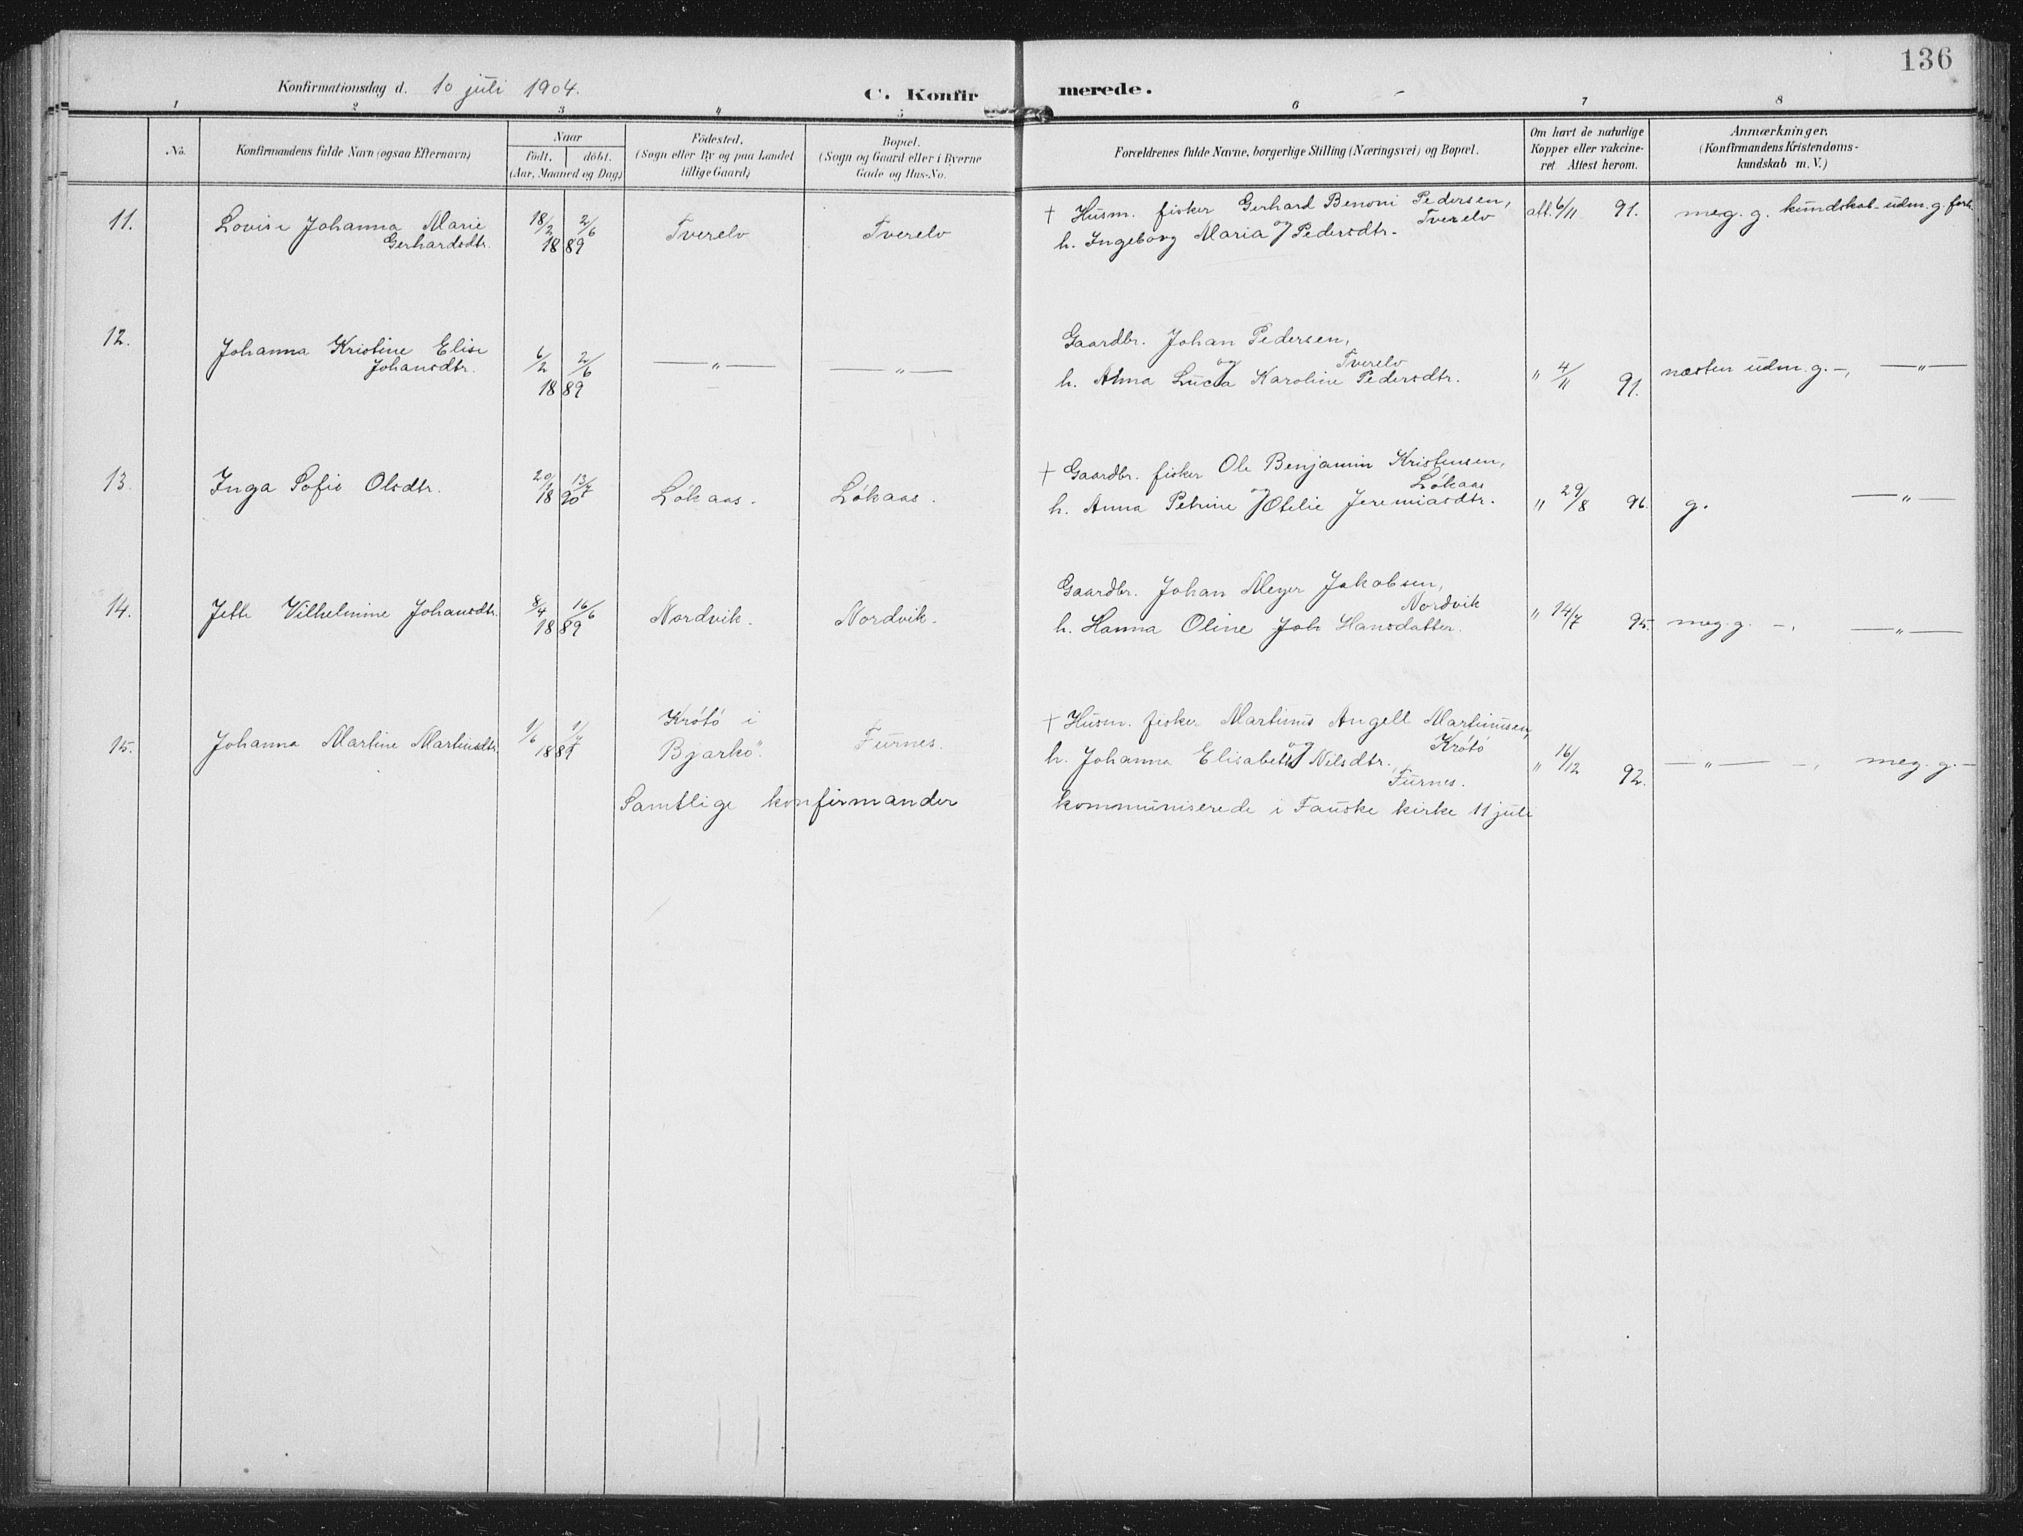 136
Konfirmationsdag d. 10 juli 1904.
C. Konfirmerede.
1 2 3 4 5 6 7 8
No.
Konfirmandens fulde Navn (ogsaa Efternavn)
Naar
født. døbt.
(Aar, Maaned og Dag)
Födested.
(Sogn eller By og paa Landet
tillige Gaard)
Bopæl.
(Sogn og Gaard eller i Byerne
Gade og Hus-No.
Forældrenes fulde Navne, borgerlige Stilling (Næringsvei) og Bopæl.
Om havt de naturlige
Kopper eller vakcine-
ret Attest herom.
Anmærkninger.
(Konfirmandens Kristendoms-
kundskab m. V.)
11. Lovise Johanna Marie
Gerhardsdtr.
18/2 2/6
1889
Tverelv
Tverelv
+ Husm. fisker Gerhard Benoni Pedersen,
og Tverelv
h. Ingeborg Maria Pedersdtr.
att. 6/11 91.
meg. g. kundskab udm. g. forh.
12. Johanna Kristine Elise
Johansdtr.
6/2 2/6
1889
— " —
— " —
Gaardbr. Johan Pedersen,
og Tverelv
h. Alma Lucia Karoline Pedersdtr.
" 4/11 91.
næsten udm. g. –, — " —
13. Inga Sofie Olsdtr.
20/1 13/7
1890
Løkaas.
Løkaas.
+ Gaardbr. fisker Ole Benjamin Kristensen,
og Løkaas
h. Anna Petrine Otelie Jeremiasdtr.
" 29/8 96.
g. — " —
14. Jette Vilhelmine Johansdtr.
8/4 16/6
1889
Nordvik.
Nordvik.
Gaardbr. Johan Meyer Jakobsen,
Nordvik
h. Hanna Oline Joh Hansdatter.
" 14/7 95.
meg. g. –, — " —
15. Johanna Martine Martinsdtr.
1/6 1/7
1889
Krøtø i
Bjarkø.
Furnes.
+ Husm. fisker Martinus Angell Martinussen,
og Krøtø
h. Johanna Elisabeth Nilsdtr.
Furnes.
" 16/12 92.
— " — –, meg. g. –
Samtlige konfirmander kommuniserede i Fauske kirke 11 juli